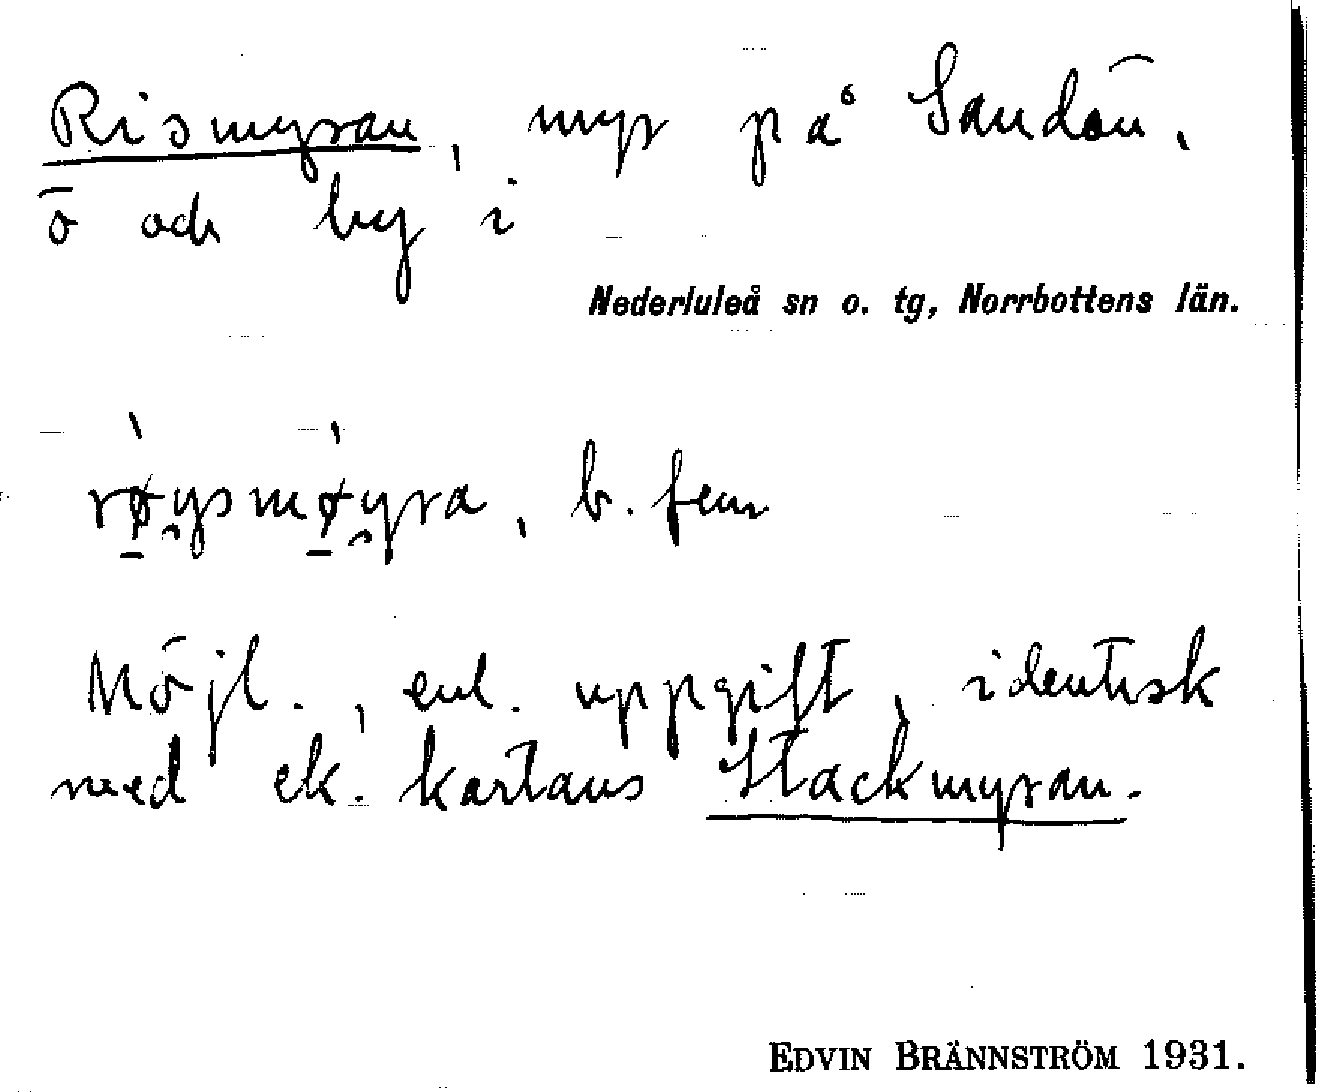 Rismyran, myr på Sandön,
ö och by i
Nederluleå sn o. tg, Norrbottens län.
rø̀ysmø̀yra, b. fem
Möjl., enl. uppgift, identisk
med ek. kartans Stackmyran.
EDVIN BRÄNNSTRÖM 1931.